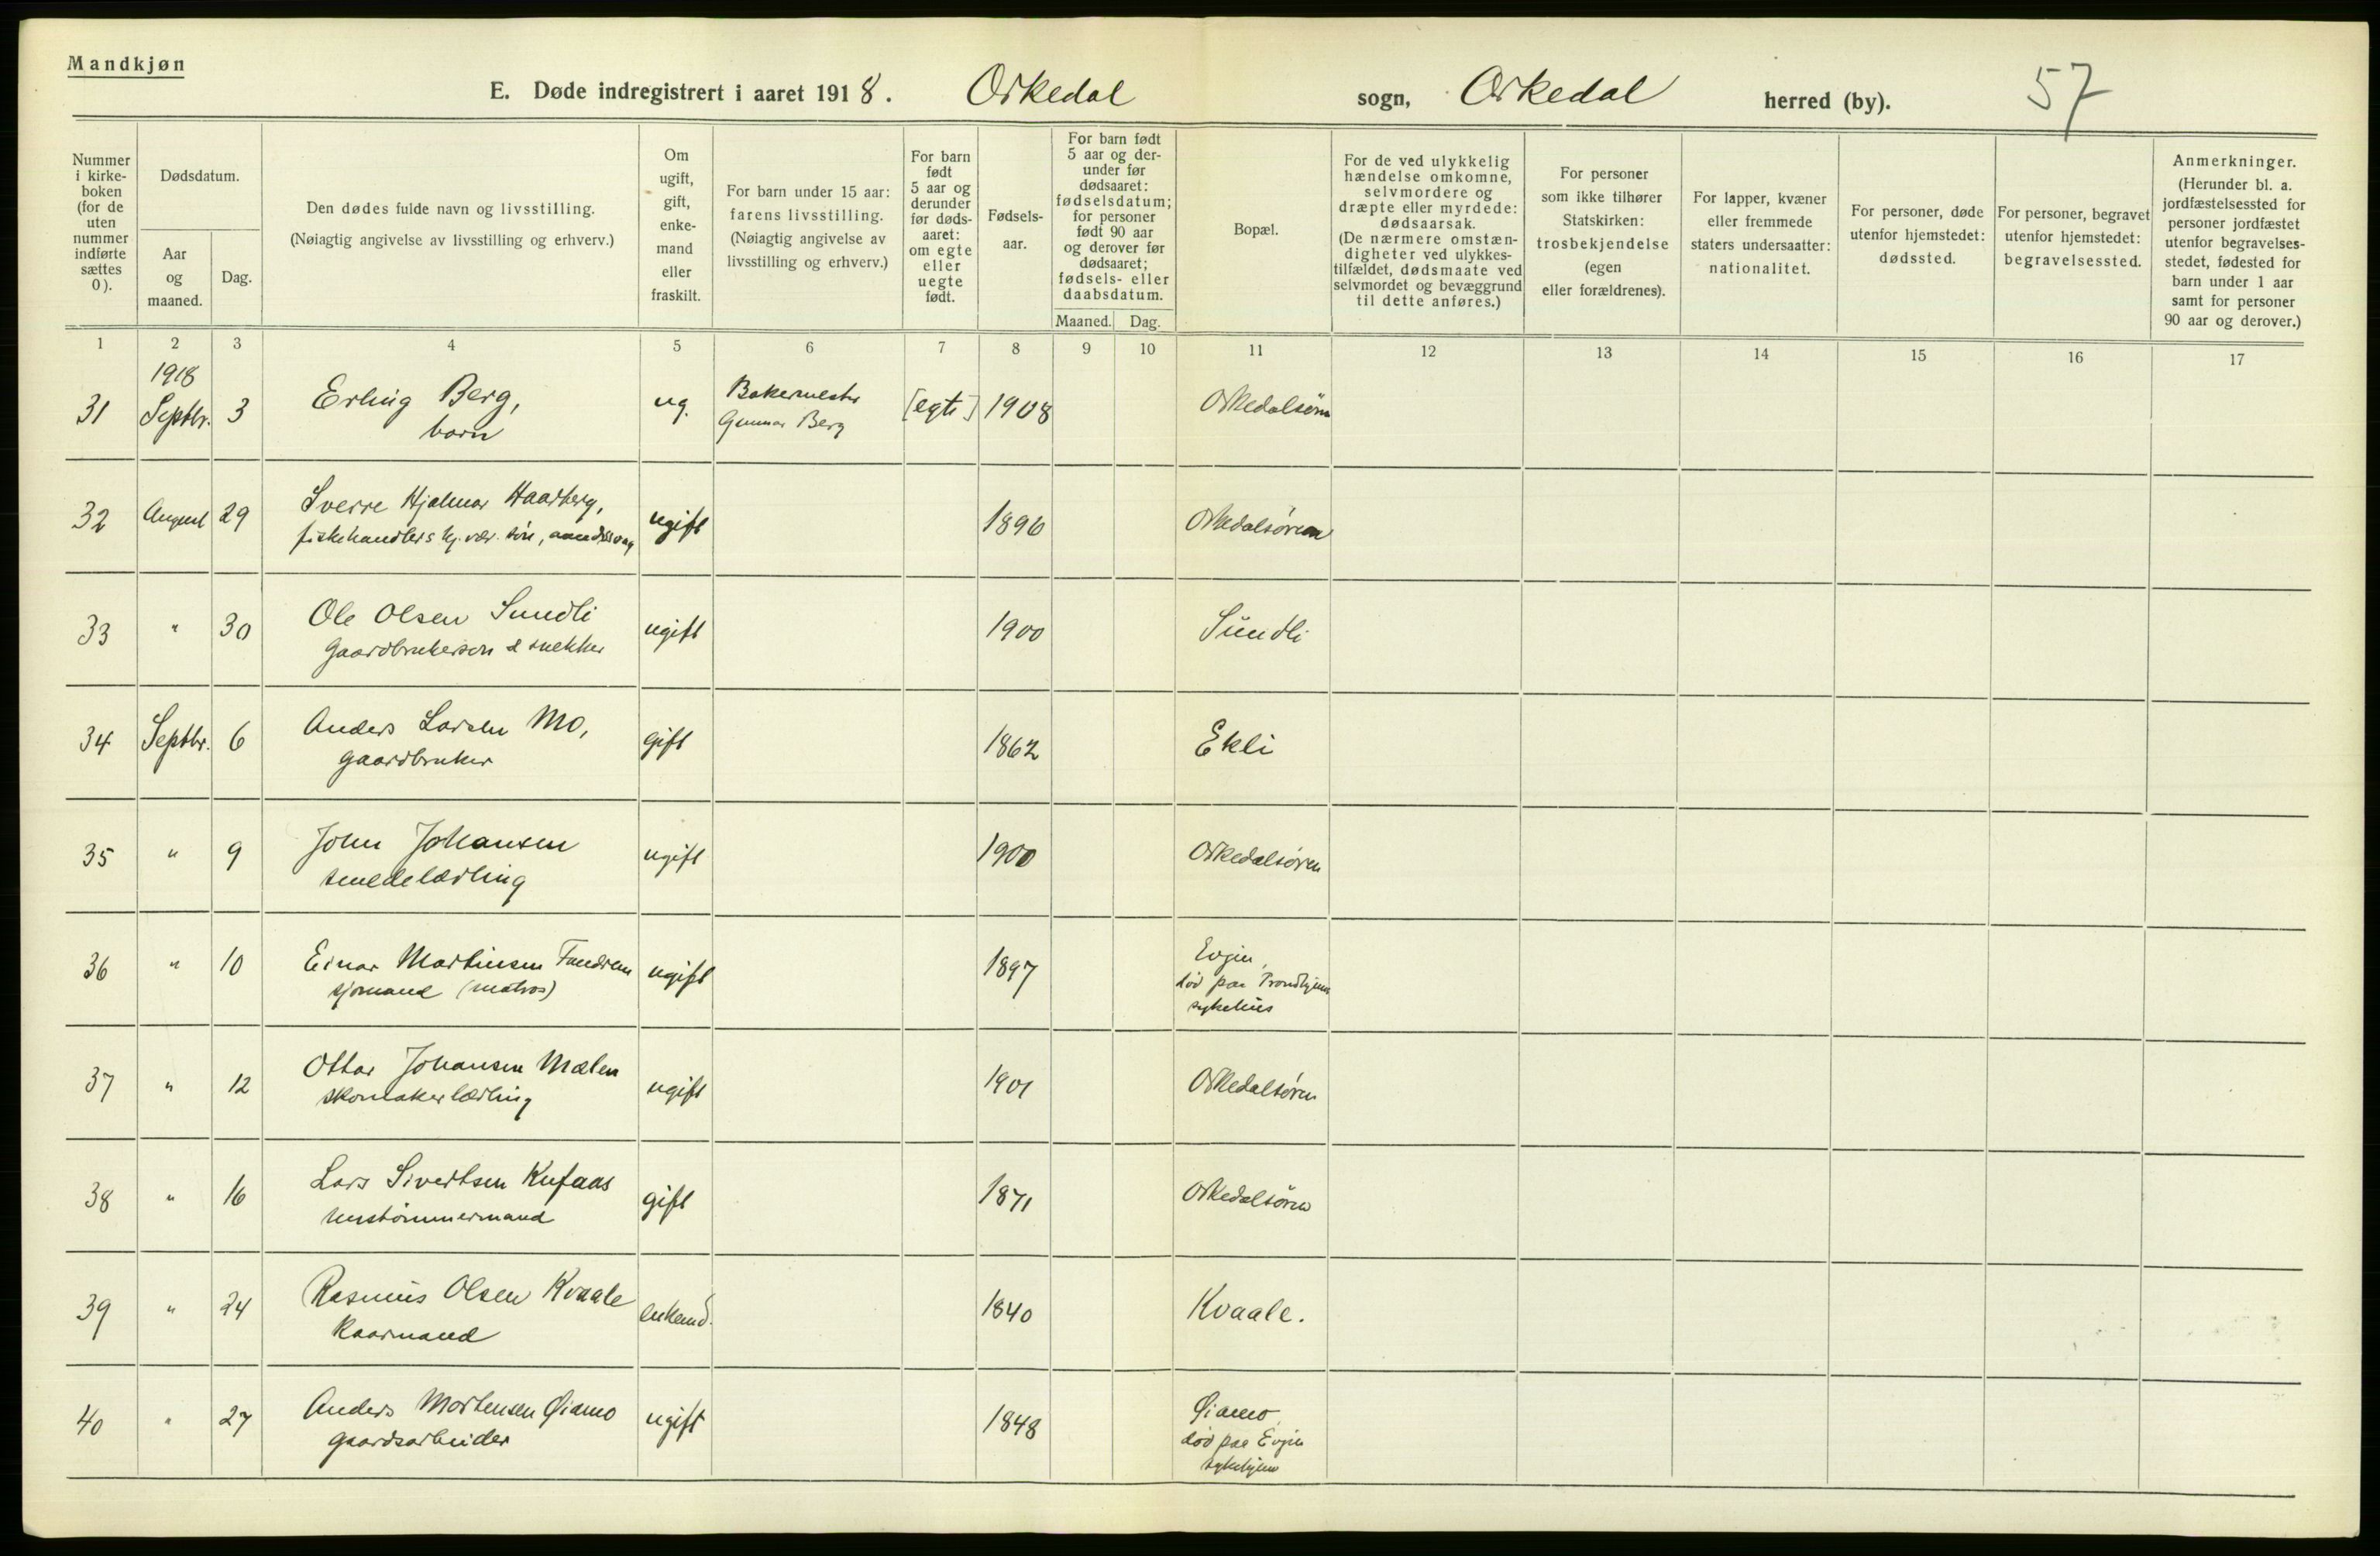 Mandkjøn
E. Døde indregistrert i aaret 1918. Orkedal sogn, Orkedal herred (by). 57
Nummer i kirke-boken (for de uten nummer indførte sættes 0).
Dødsdatum.
Aar og maaned.
Dag.
Den dødes fulde navn og livsstilling.
(Nøiagtig angivelse av livsstilling og erhverv.)
Om ugift, gift, enke-mand eller fraskilt.
For barn under 15 aar: farens livsstilling. (Nøiagtig angivelse av livsstilling og erhverv.)
For barn født 5 aar og derunder før døds-aaret: om egte eller uegte født.
Fødsels-aar.
For barn født 5 aar og der-under før dødsaaret: fødselsdatum; for personer født 90 aar og derover før dødsaaret; fødsels- eller daabsdatum.
Maaned. Dag.
Bopæl.
For de ved ulykkelig hændelse omkomne, selvmordere og dræpte eller myrdede: dødsaarsak. (De nærmere omstæn-digheter ved ulykkes-tilfældet, dødsmaate ved selvmordet og bevæggrund til dette anføres.)
For personer som ikke tilhører Statskirken: trosbekjendelse (egen eller forældrenes).
For lapper, kvæner eller fremmede staters undersaatter: nationalitet.
For personer, døde utenfor hjemstedet: dødssted.
For personer, begravet utenfor hjemstedet: begravelsessted.
Anmerkninger. (Herunder bl. a. jordfæstelsessted for personer jordfæstet utenfor begravelses-stedet, fødested for barn under 1 aar samt for personer 90 aar og derover.)
1 2 3 4 5 6 7 8 9 10 11 12 13 14 15 16 17
1918
31 Septbr. 3 Erling Berg, ug. Bakermester [egte] 1908 Orkedalsøren
barn Gunnar Berg
32 August 29 Sverre Hjalmar Haarberg, ugift 1896 Orkedalsøren
fiskehandlers hj. vær. søn, aandssvag
33 " 30 Ole Olsen Sundli ugift 1900 Sundli
Gaardbrukersøn & snekker
34 Septbr. 6 Anders Larsen Mo, gift 1862 Ekli
gaardbruker
35 " 9 John Johansen ugift 1900 Orkedalsøren
smedelærling
36 " 10 Einar Martinsen Fandrem ugift 1897 Evjen,
sjømand (matros) død paa Trondhjems
sykehus
37 " 12 Ottar Johansen Mælen ugift 1901 Orkedalsøren
skomakerlærling
38 " 16 Lars Sivertsen Kufaas gift 1871 Orkedalsøren
hustømmermand
39 " 24 Rasmus Olsen Kvaale enkemd. 1840 Kvaale.
Kaarmand
40 " 27 Anders Mortensen Øiamo ugift 1848 Øiamo,
gaardsarbeider død paa Evjen
sykehjem